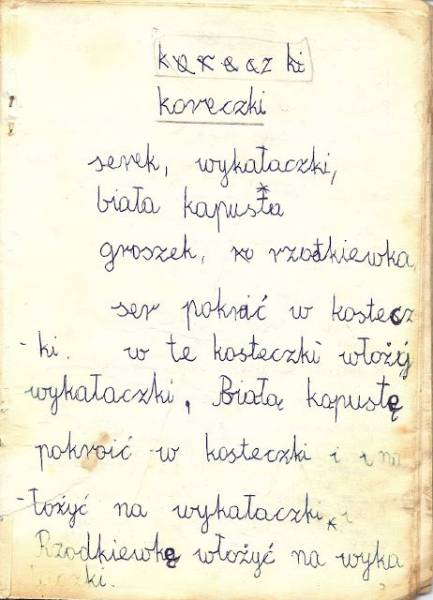 koreczki
serek, wykałaczki,
biała kapusta
groszek, rzodkiewka
ser pokroić w kostecz
- ki. w te kosteczki włożyj
wykałaczki, Białą kapustę
pokroić w kosteczki i
- łożyć na wykałaczki,
Rzodkiewkę włożyć na wyka